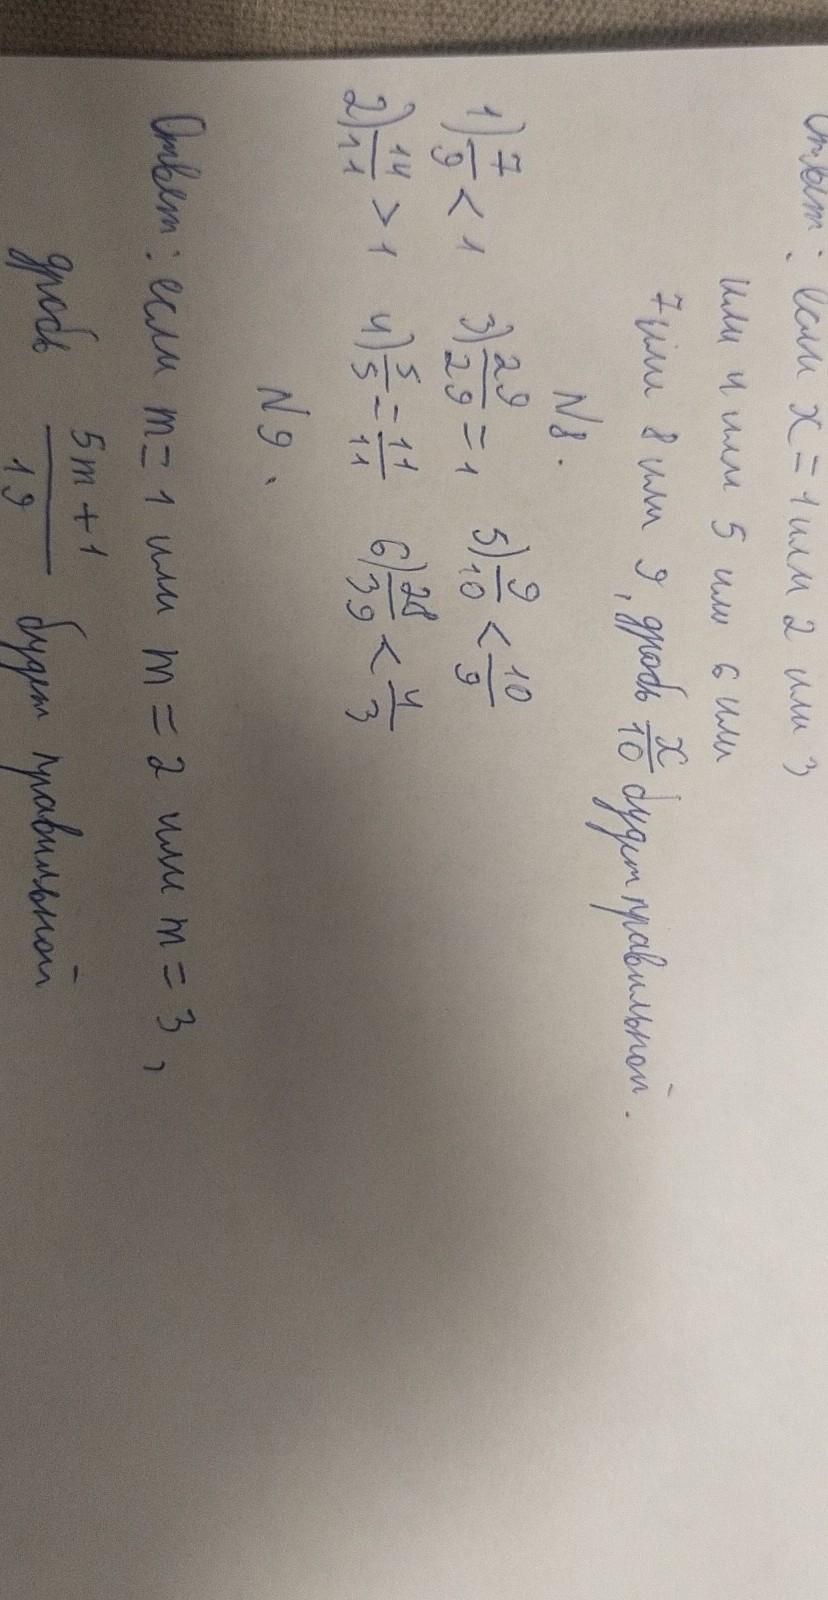 Ответ: если x = 1 или 2 или 3
или 4 или 5 или 6 или
7 или 8 или 9, дробь x/10 будет правильной.
N8.
1) 7/9 < 1 3) 29/29 = 1 5) 9/10 < 10/9
2) 14/11 > 1 4) 5/5 = 11/11 6) 28/39 < 4/3
N9.
Ответ: если m = 1 или m = 2 или m = 3,
дробь (5m + 1)/19 будет правильной